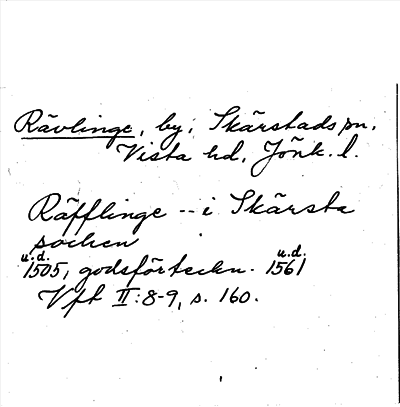 Rävlinge, by, Skärstads sn,
Vista hd, Jönk. l.
Räfflinge -- i Skärsta
sochen
u.d. u.d.
1505, godsförteckn. 1561
Vft II:8-9, s. 160.